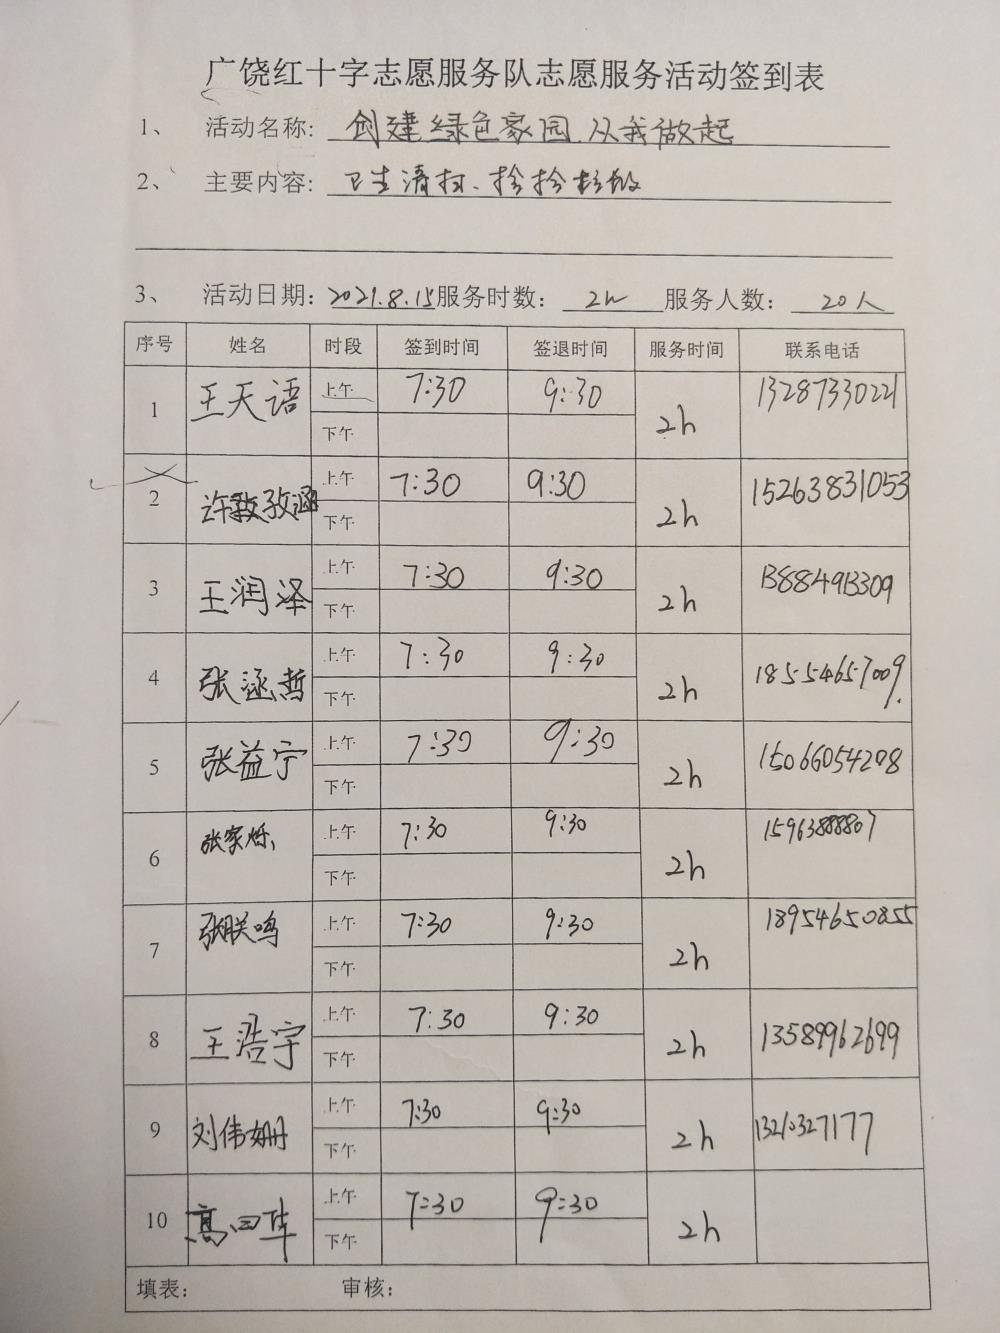 广饶红十字志愿服务队志愿服务活动签到表
1、 活动名称: 创建绿色家园、从我做起
2、 主要内容: 卫生清扫、捡拾垃圾
3、 活动日期: 2021.8.15 服务时数: 2h 服务人数: 20人
序号 姓名 时段 签到时间 签退时间 服务时间 联系电话
1 王天语 上午 7:30 9:30 2h 13287330221
下午
2 上午 7:30 9:30 2h 15263831053
下午
3 王润泽 上午 7:30 9:30 2h 13884913309
下午
4 张涵哲 上午 7:30 9:30 2h 18554657009
下午
5 张益宁 上午 7:30 9:30 2h 15066054208
下午
6 张家烁 上午 7:30 9:30 2h 15963888807
下午
7 张朕鸣 上午 7:30 9:30 2h 18954650855
下午
8 王浩宇 上午 7:30 9:30 2h 13589962699
下午
9 刘伟姗 上午 7:30 9:30 2h
下午
10 上午 7:30 9:30 2h
下午
填表: 审核: